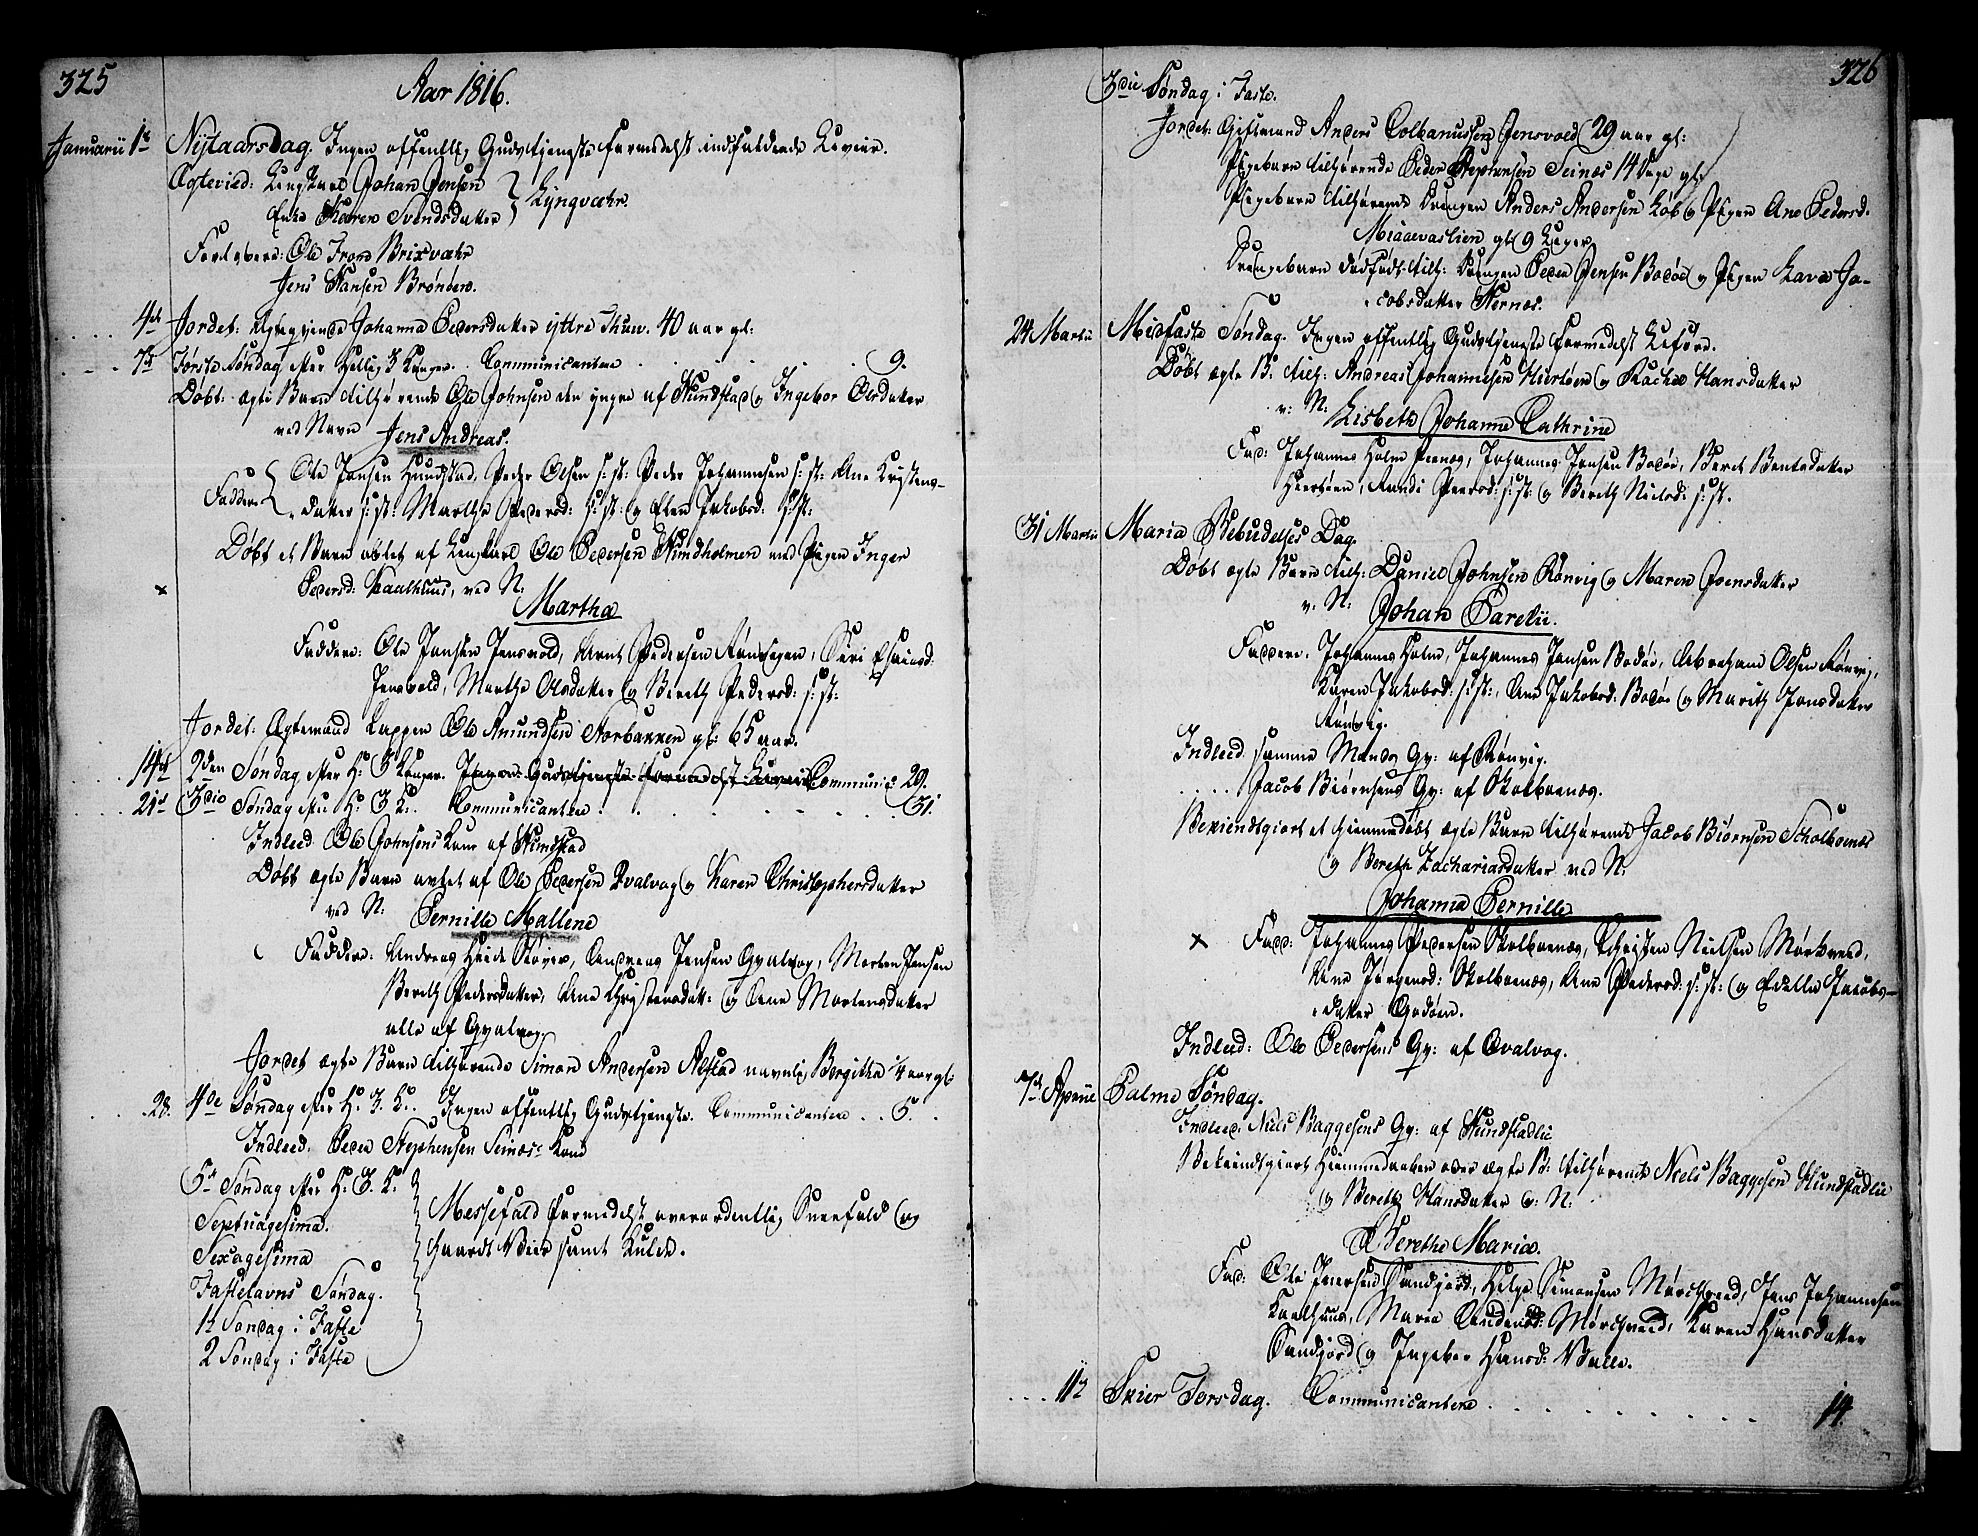 325
Aar 1816.
Januarii 1ste Nytaarsdag. Ingen offentlig Gudstjeneste formedelst indfaldende Uveier.
Ægtevied: Ungkarl Johan Jensen
Enke Karen Svendsdatter } Lyngvær.
Forlovere: Ole Trons Brixvær
Jens Hansen Brønøen.
4de Jordet: Johanna Pedersdatter yttre Thuv. 40 aar gl:
7de Første Søndag efter Hellig 3 Konger. Communicantere 9.
Døbt: ægte Barn tilhørende Ole Johnsen den yngre af Hundstad og Ingebor Olsdatter
ved Navn Jens Andreas.
Faddere { Ole Jensen Hundstad, Peder Olsen s: st: Peder Johannesen s: st: Ane Kristens-
datter s: st: Marthe Pedersd: s: st: og Elen Jakobsd: s: st:
Døbt et Barn avlet af Ungkarl Ole Pedersen Hundholmen med Pigen Inger
Pedersd: Kaalhuus, ved N:
Martha
Faddere: Ole Jensen Jensvold, Arnt Pedersen Rønvigen, Siri
Jensvold, Marthe Olsdatter og Bereth Pedersd: s: st:
Jordet: Ægtemand Lappen Ole Amundsen Storbakken gl: 65 aar.
14de 2den Søndag efter H: 3 Konger. Ingen Gudstjeneste formedelst Uveier Communic: 29.
21de 3die Søndag efter H: 3 K: Communicantere 31.
Indleed Ole Johnsens Kone af Hundstad
Døbt ægte Barn avlet af Ole Pedersen Qvalvog og Karen Christophersdatter
ved N: Pernille Mallene
Faddere: Andreas Heide Støver, Andreas Jensen Qvalvog, Morten Jensen
Bereth Pedersdatter, Ane Chrystensdatt: og Ane Mortensdatter
alle af Qvalvog
Jordet ægte Barn tilhørende Simon Andersen Alstad navnlig Bergitha 1/4 aar gl:
28. 4de Søndag efter H. 3. K. Ingen offentlig Gudstjeneste. Communicantere 5.
Indleed: Peder Stephensen Seinæs Kone
5te Søndag efter H. 3. K.
Septuagesima.
Sexagesima
Fastelavns Søndag.
1te Søndag i Faste
2 Søndag i Faste
Messefald formedelst overordentlig Sneefald og
haardt Veir samt Kulde.
326
3die Søndag i Faste.
Jordet: Giftmand Anders Colbanussen Jensvold 29 aar gl:
Pigebarn tilhørende Peder Stephensen Seinæs 14 Dage gl:
Pigebarn tilhørende Drengen Anders Andersen Løb og Pigen Ane Pedersd.
Misvaerlien gl: 9 Uger
Drengebarn dødfødt tilh: Drengen Peder Jensen Bodøe og Pigen Lava Ja-
cobsdatter Nernæs.
24 Martii Midfaste Søndag. Ingen offentlig Gudstjeneste formedelst Uføre.
Døbt ægte B. tilh: Andreas Johannesen Hiertøen og Rachel Hansdatter
v: N: Lisbeth Johanna Cathrine
Fad: Johannes Holm Pernæs, Johannes Jensen Bodøe, Bereth Bentsdatter
Hiertøen, Randi Peersd: s: st: og Bereth Nielsd: s: st.
31 Martii Maria Bebudelses Dag.
Døbt ægte Barn tilh: Daniel Johnsen Rønvig og Maren Jensdatter
v: N: Johan Parelii.
Faddere. Johannes Holm, Johannes Jensen Bodøe, Abraham Olsen Rønvig,
Karen Jakobsd: s: st:, Ane Jakobsd: Bodøe og Marith Jonsdatter
Rønvig.
Indleed samme Mands Qv: af Rønvig.
Jacob Biørnsens Qv: af Skolboenæs.
Bekiendtgiort et hiemmedøbt ægte Barn tilhørende Jacob Biørnsen Scholboenæs
og Bereth Zachariasdatter ved N:
Johanna Pernille
Fad: Johannes Pedersen Skolboenæs, Christen Nielsen Mørkved,
Ane Jørgensd: Skolboenæs, Ane Pedersd: s: st: og Edelle Jacobs-
datter Godøen.
Indleed: Ole Pedersens Qv: af Qvalvog.
7de Aprill Palme Søndag.
Indleed: Niels Baggesens Qv: af Hundstadlii
Bekiendtgiort Hiemmedaaben over ægte B: tilhørende Niels Baggesen Hundstadlii
og Bereth Hansdatter v: N:
Berethe Maria.
Fad: Ole Iversen Sandjord, Helge Simonsen Mørchved, Jens Johannesen
Kaalhuus, Maria Andersd: Mørchved, Karen Hansdatter
Sandjord og Ingebor Hansd: Valle.
11te Skier Torsdag. Communicantere 14